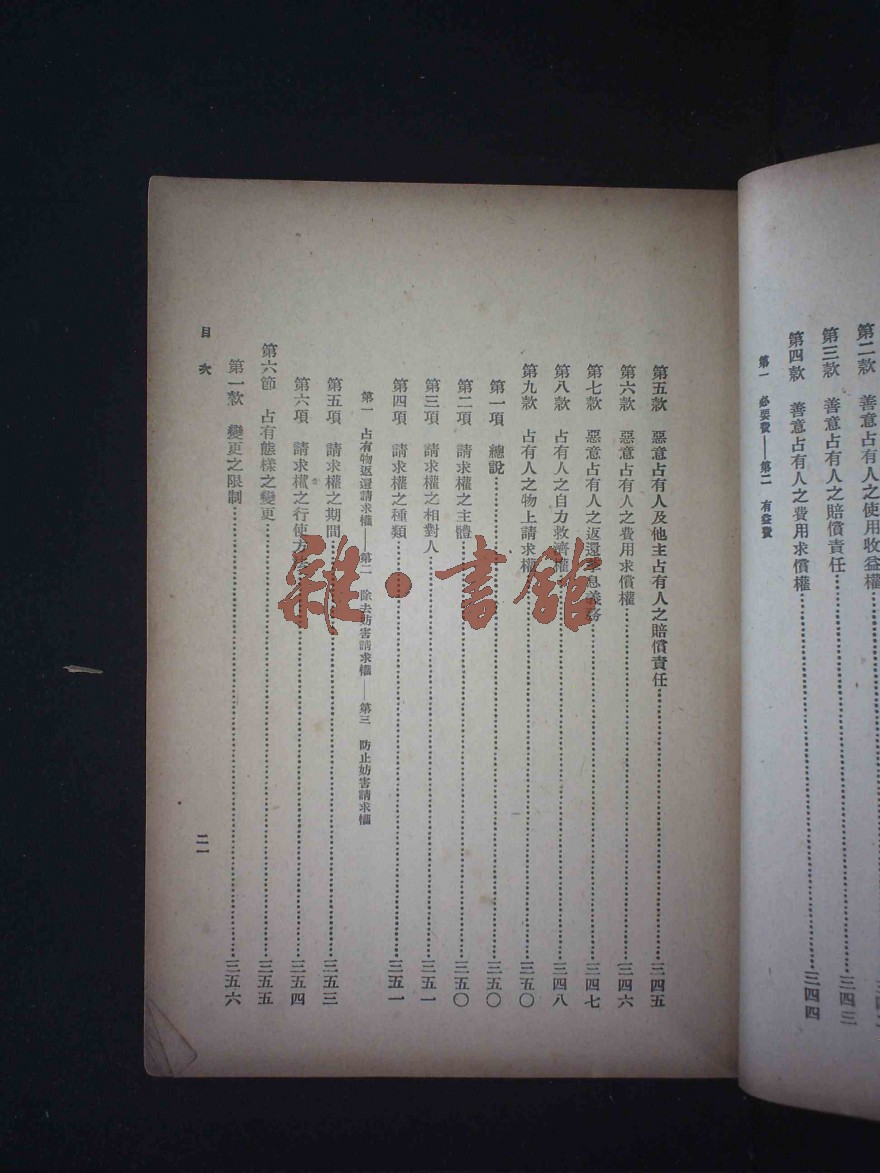 第二款　善意占有人之使用收益權
第三款　善意占有人之賠償責任……三四三
第四款　善意占有人之費用求償權……三四四
第一　必要費——第二　有益費
第五款　惡意占有人及他主占有人之賠償責任……三四五
第六款　惡意占有人之費用求償權……三四六
第七款　惡意占有人之返還孳息義務……三四七
第八款　占有人之自力救濟權……三四八
第九款　占有人之物上請求權……三五〇
第一項　總説……三五〇
第二項　請求權之主體……三五〇
第三項　請求權之相對人……三五一
第四項　請求權之種類……三五一
第一　占有物返還請求權——第二　除去妨害請求權——第三　防止妨害請求權
第五項　請求權之期間……三五三
第六項　請求權之行使方法……三五四
第六節　占有態樣之變更……三五五
第一款　變更之限制……三五六
目次
二一
雜·書館